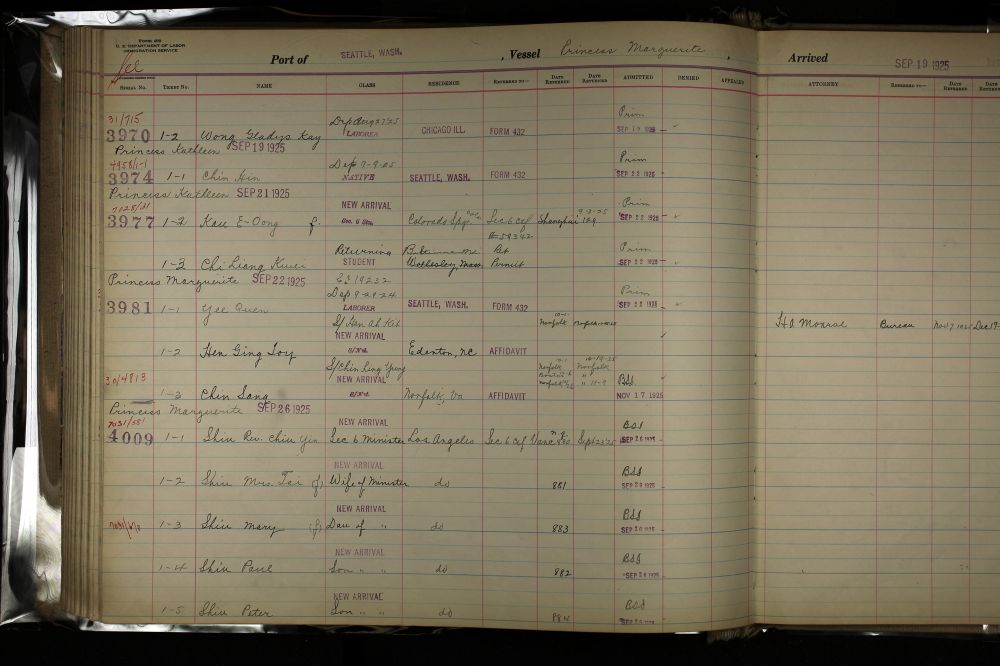 FORM 430
U. S. DEPARTMENT OF LABOR
IMMIGRATION SERVICE
Port of SEATTLE, WASH. , Vessel Princess Marguerite , Arrived SEP 19 1925
SERIAL No. TICKET No. NAME CLASS RESIDENCE REFERRED TO— DATE REFERRED DATE RETURNED ADMITTED DENIED APPEALED ATTORNEY REFERRED TO— DATE REFERRED DATE
31/715 Dep Aug 27 25 Prim
3970 1-2 Wong Gladys Kay LABORER CHICAGO ILL. FORM 432 SEP 19 1925
Princess Kathleen SEP 19 1925
4958/1-1 Dep 7-9-25 Prim
3974 1-1 Chin Hin NATIVE SEATTLE, WASH. FORM 432 SEP 22 1925
Princess Kathleen SEP 21 1925
7028/31 NEW ARRIVAL Prim
3977 1-2 Kaee E-Oong f Sec. 6 Stu. Colorado Spgs Sec 6 cef Shanghai 9-3-25 129 SEP 22 1925
#59342
Returning Ret Prim
1-3 Chi Liang Kwei STUDENT Wellesley, Mass. Permit SEP 22 1925
Princess Marguerite SEP 22 1925 19232
Dep 9-29-24 Prim
3981 1-1 Yee Quen LABORER SEATTLE, WASH. FORM 432 SEP 22 1925
S/ Hen Ah Kit 10-1- Norfolk H.A. Monroe Bureau Nov 7 1925 Dec 19
NEW ARRIVAL
1-2 Hen Ging Soy S/Nat. Edenton, NC AFFIDAVIT
S/Chin Ling Yung 10-1 10-19-25
30/4813 NEW ARRIVAL Norfolk Norfolk BSI
1-3 Chin Sang S/Nat. Norfolk, Va AFFIDAVIT NOV 17 1925
Princess Marguerite SEP 26 1925
7031/581 NEW ARRIVAL BSI
4009 1-1 Shiu Rev. Chiu Yin Sec 6 Minister Los Angeles Sec 6 cef SEP 26 1925
NEW ARRIVAL BSI
1-2 Shiu Mrs. Tai (f) Wife of Minister do 881 SEP 26 1925
NEW ARRIVAL BSI
1-3 Shiu Mary (f) Dau of " do 883 SEP 26 1925
NEW ARRIVAL BSI
1-4 Shiu Paul Son " " do 882 SEP 26 1925
NEW ARRIVAL BSI
1-5 Shiu Peter Son " " do 884 SEP 26 1925